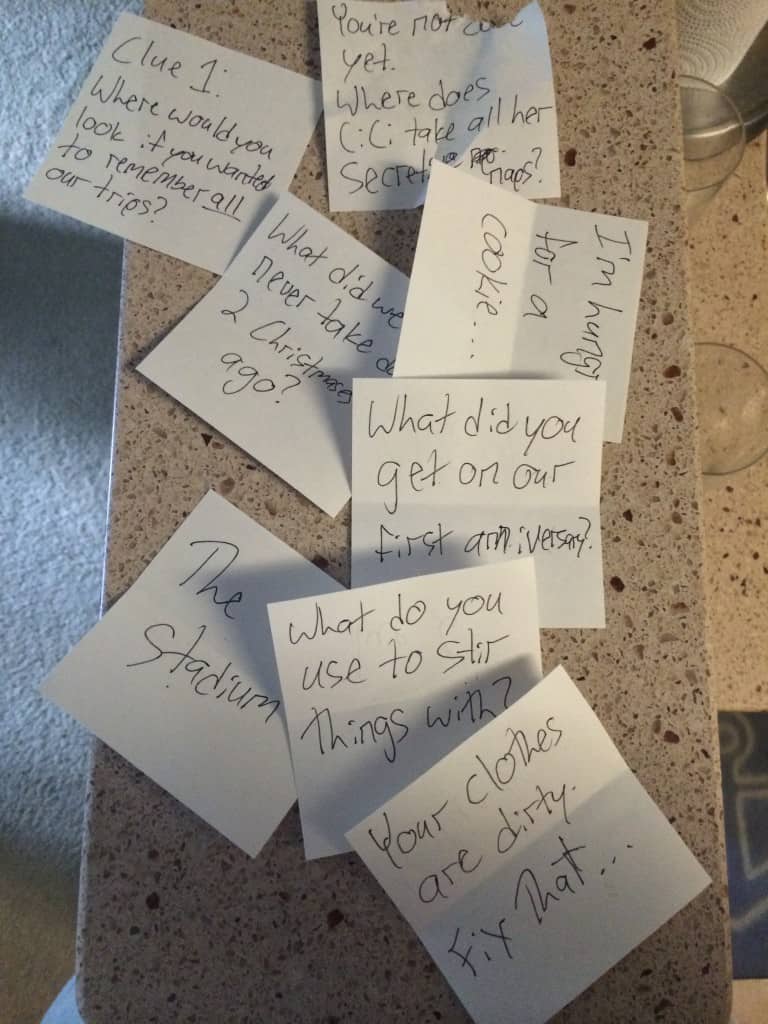 Clue 1:
Where would you
look if you wanted
to remember all
our trips?
You're not
yet.
Where does
CiCi take all her
secret naps?
What did we
never take
2 Christmases
ago?
I'm hungry
for a
cookie...
What did you
get on our
first anniversary?
The
Stadium
What do you
use to stir
things with?
Your clothes
are dirty.
Fix That...